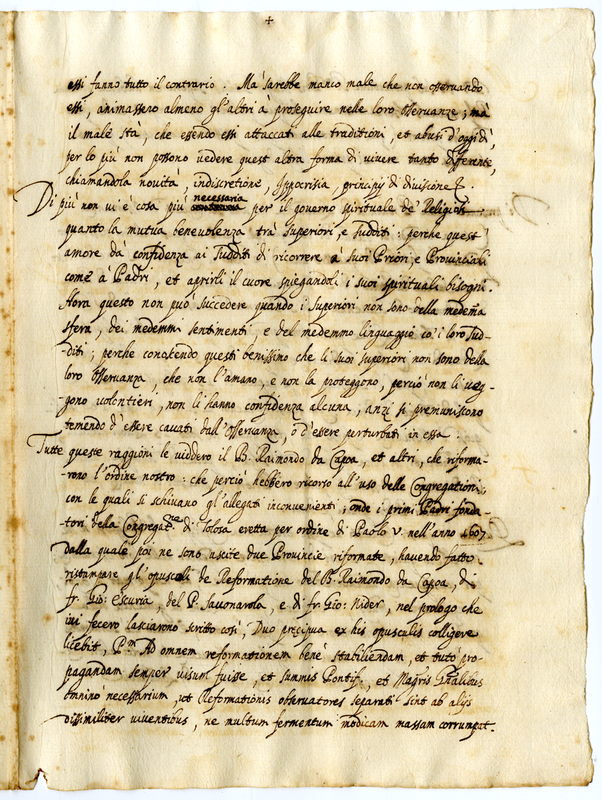 +
essi fanno tutto il contrario. Ma sarebbe manco male che non osservando
essi, animassero almeno gl'altri à proseguire nelle loro osservanze; mà
il male sta, che essendo essi attaccati alle traditioni, et abusi d'oggidì,
per lo più non possono vedere quest altra forma di vivere tanto differente,
chiamandola novità, indiscretione, Ippocrisia, principij di divisione
Di più non vi è cosa più necessaria per il governo spirituale de Religiosi
quanto la mutua benevolenza trà Superiori, e Sudditi: perche quest'
amore dà confidenza ai Sudditi di ricorrere à suoi Priori, e Provinciali
come à Padri, et aprirli il cuore spiegandoli i suoi spirituali bisogni.
Hora questo non può succedere quando i Superiori non sono della medema
sfera, dei medemmi sentimenti, e del medemmo linguaggio co' i loro Sud-
diti; perche conoscendo questi benissimo che li suoi superiori non sono della
loro osservanza, che non l'amano, e non la proteggono, perciò non li veg-
gono volontieri, non li hanno confidenza alcuna, anzi si premuniscono
temendo d'essere cavati dall'osservanza, ò d'essere perturbati in essa.
Tutte queste raggioni le viddero il B. Raimondo da Capoa, et altri, che riforma-
rono l'ordine nostro: che perciò hebbero ricorso all'uso delle Congregationi,
con le quali si schivano gl'allegati inconvenienti; onde i primi Padri fonda-
tori della Congregat.ne di Tolosa eretta per ordine di Paolo V. nell'anno 1607.
dalla quale poi ne sono uscite due Provincie riformate, havendo fatto
ristampare gl'opuscoli de Reformatione del B. Raimondo da Capoa, di
fr. Gio: Escuria, del P. Savonarola, e di fr. Gio: Nider, nel prologo che
ivi fecero lasciarono scritto così, Duo precipua ex his opusculis colligere
licebit, P.m Ad omnem reformationem bene stabiliendam, et tuto pro-
pagandam semper visum fuisse, et summis Pontif., et Magris Gnalibus
omnino necessarium, ut Reformationis observatores separati sint ab alijs
dissimiliter viventibus, ne multum fermentum modicam massam corrumpat.